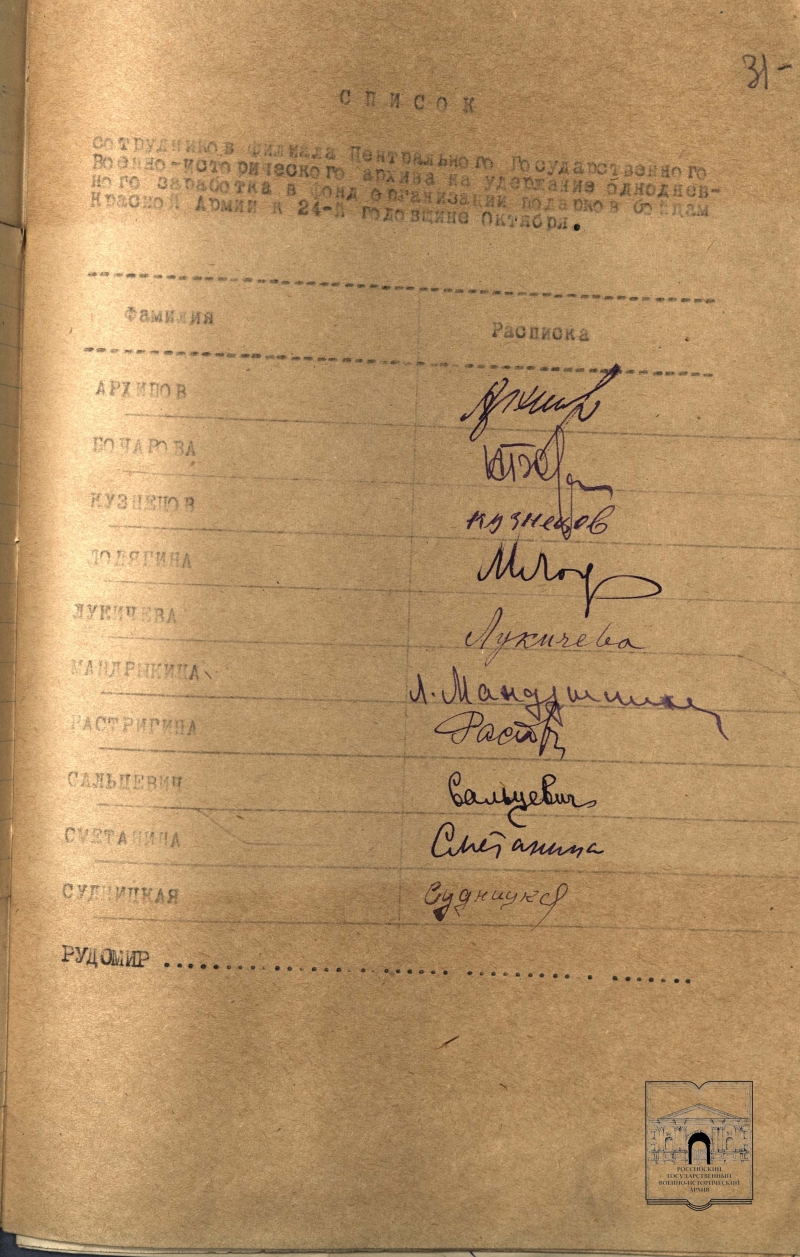 31-
СПИСОК
сотрудников филиала Центрального Государственного
Военно-исторического архива на удержание одноднев-
ного заработка в фонд организации подарков бойцам
Красной Армии к 24-й годовщине Октября.
Фамилия Расписка
АРХИПОВ Архипов
БОЧАРОВА
КУЗНЕЦОВ кузнецов
ЛОДЯГИНА МЛод
ЛУКИЧЕВА Лукичева
МАНДРЫКИНА Л. Мандрыкина
РАСТРИГИНА Раст
САЛЬЦЕВИЧ Сальцевич
СМЕТАНИНА Сметанина
СУДНИЦКАЯ Судницкая
РУДОМИР ..............................
РОССИЙСКИЙ
ГОСУДАРСТВЕННЫЙ
ВОЕННО-ИСТОРИЧЕСКИЙ
АРХИВ